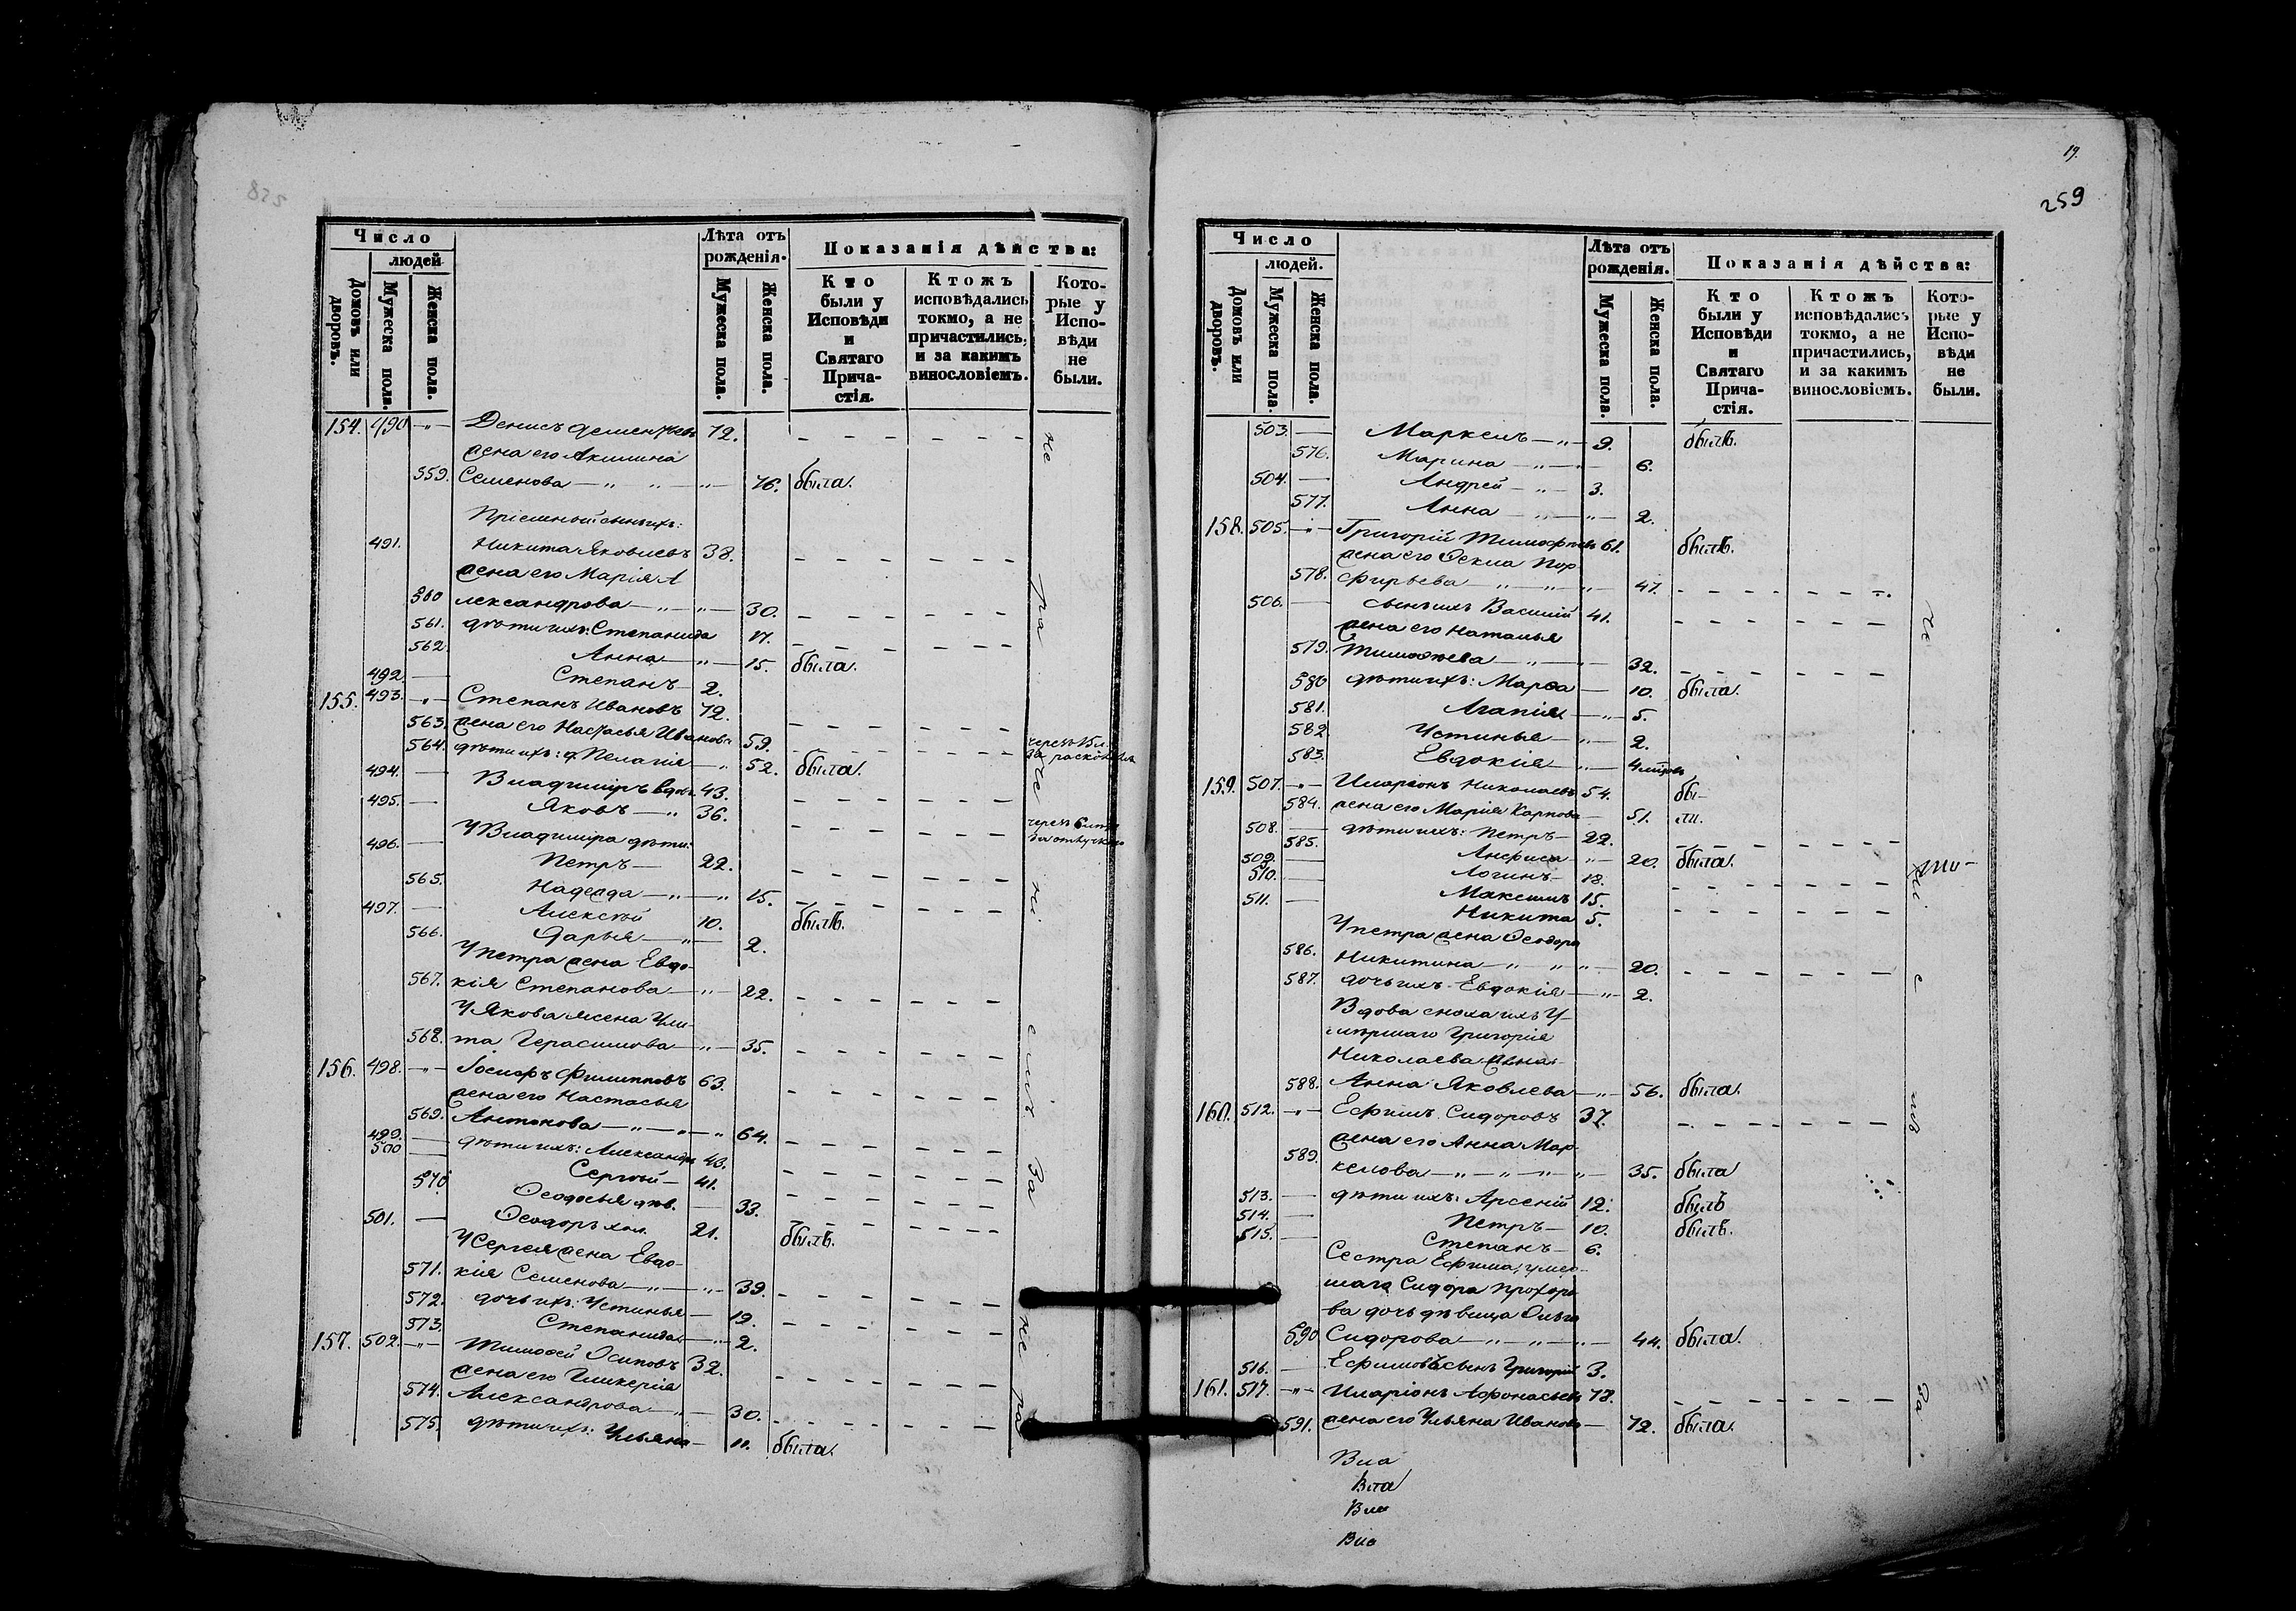 19.
259
Число
людей
Домовъ или дворовъ.
Мужеска пола.
Женска пола.
Лѣта отъ рожденія.
Мужеска пола.
Женска пола.
Показанія дѣйства:
Кто были у Исповѣди и Святаго Прича-стія.
Ктожъ исповѣдались токмо, а не причастились, и за какимъ винословіемъ.
Кото-рые у Испо-вѣди не были.
154. 490 Денисъ Дементьевъ 72.
жена его Акилина
559. Семенова 76. была.
Пріемный сынъ ихъ:
491. Никита Яковлевъ 38.
жена его Марія А
560 лександрова 30.
561. дѣти ихъ: Степанида 17.
562. Анна 15. была.
492. Степанъ 2.
155. 493. Степанъ Ивановъ 72.
563. жена его Настасья Иванова 59.
564. дѣти ихъ: д. Пелагія 52. была.
494. Владиміръ вдов. 43.
495. Яковъ 36.
У Владиміра дѣти:
496. Петръ 22.
565. Надежда 15.
497. Алексѣй 10. былъ.
566. Дарья 2.
У Петра жена Евдо-
567. кія Степанова 22.
У Якова жена Ули-
568. та Герасимова 35.
156. 498. Іосифъ Филипповъ 63.
жена его Настасья
569. Антонова 64.
499. дѣти ихъ: Александръ 43.
500 Сергѣй 41.
570. Ѳеодосья дѣв. 33.
501. Ѳеодоръ хол. 21. былъ.
У Сергея жена Евдо-
571. кія Семенова 39.
572. дочь ихъ: Устинья 19.
573. Степанида 2.
157. 502. Тимоѳей Осиповъ 32.
жена его Гликерія
574. Александрова 30.
575. дѣти ихъ: Ульяна 11. была.
Число
людей.
Домовъ или дворовъ.
Мужеска пола.
Женска пола.
Лѣта отъ рожденія.
Мужеска пола.
Женска пола.
Показанія дѣйства:
Кто были у Исповѣди и Святаго Прича-стія.
Ктожъ исповѣдались токмо, а не причастились, и за какимъ винословіемъ.
Кото-рые у Испо-вѣди не были.
503. Маркелъ 9. былъ.
576. Марина 6.
504. Андрей 3.
577. Анна 2.
158. 505. Григорій Тимофѣевъ 61. былъ.
жена его Ѳекла Пор
578. фирьева 47.
506. сынъ ихъ Василій 41.
жена его Наталья
579. Тимофѣева 32.
580 дѣти ихъ: Марѳа 10. была.
581. Агапія 5.
582. Устинья 2.
583. Евдокія
159. 507. Иларіонъ Николаевъ 54. бы-
584. жена его Марія Карпова 51. ли.
508. дѣти ихъ: Петръ 22.
585. Анфиса 20. была.
509. Логинъ 18.
510. Максимъ 15.
511. Никита 5.
У Петра жена Ѳеодора
586. Никитина 20.
587. дочь ихъ Евдокія 2.
Вдова сноха ихъ У-
мершаго Григорія
Николаева жена
588. Анна Яковлева 56. была.
160. 512. Ефимъ Сидоровъ 37.
жена его Анна Мар-
589. келова 35. была
513. дѣти ихъ: Арсеній 12. былъ
514. Петръ 10. былъ.
515. Степанъ 6.
Сестра Ефима, умер-
шаго Сидора Прохоро-
ва дочь дѣвица Ольга
590 Сидорова 44. была.
516. Ефимовъ сынъ Григорій 3.
161. 517. Иларіонъ Афонасьевъ 78.
591. жена его Ульяна Иванова 72. была.